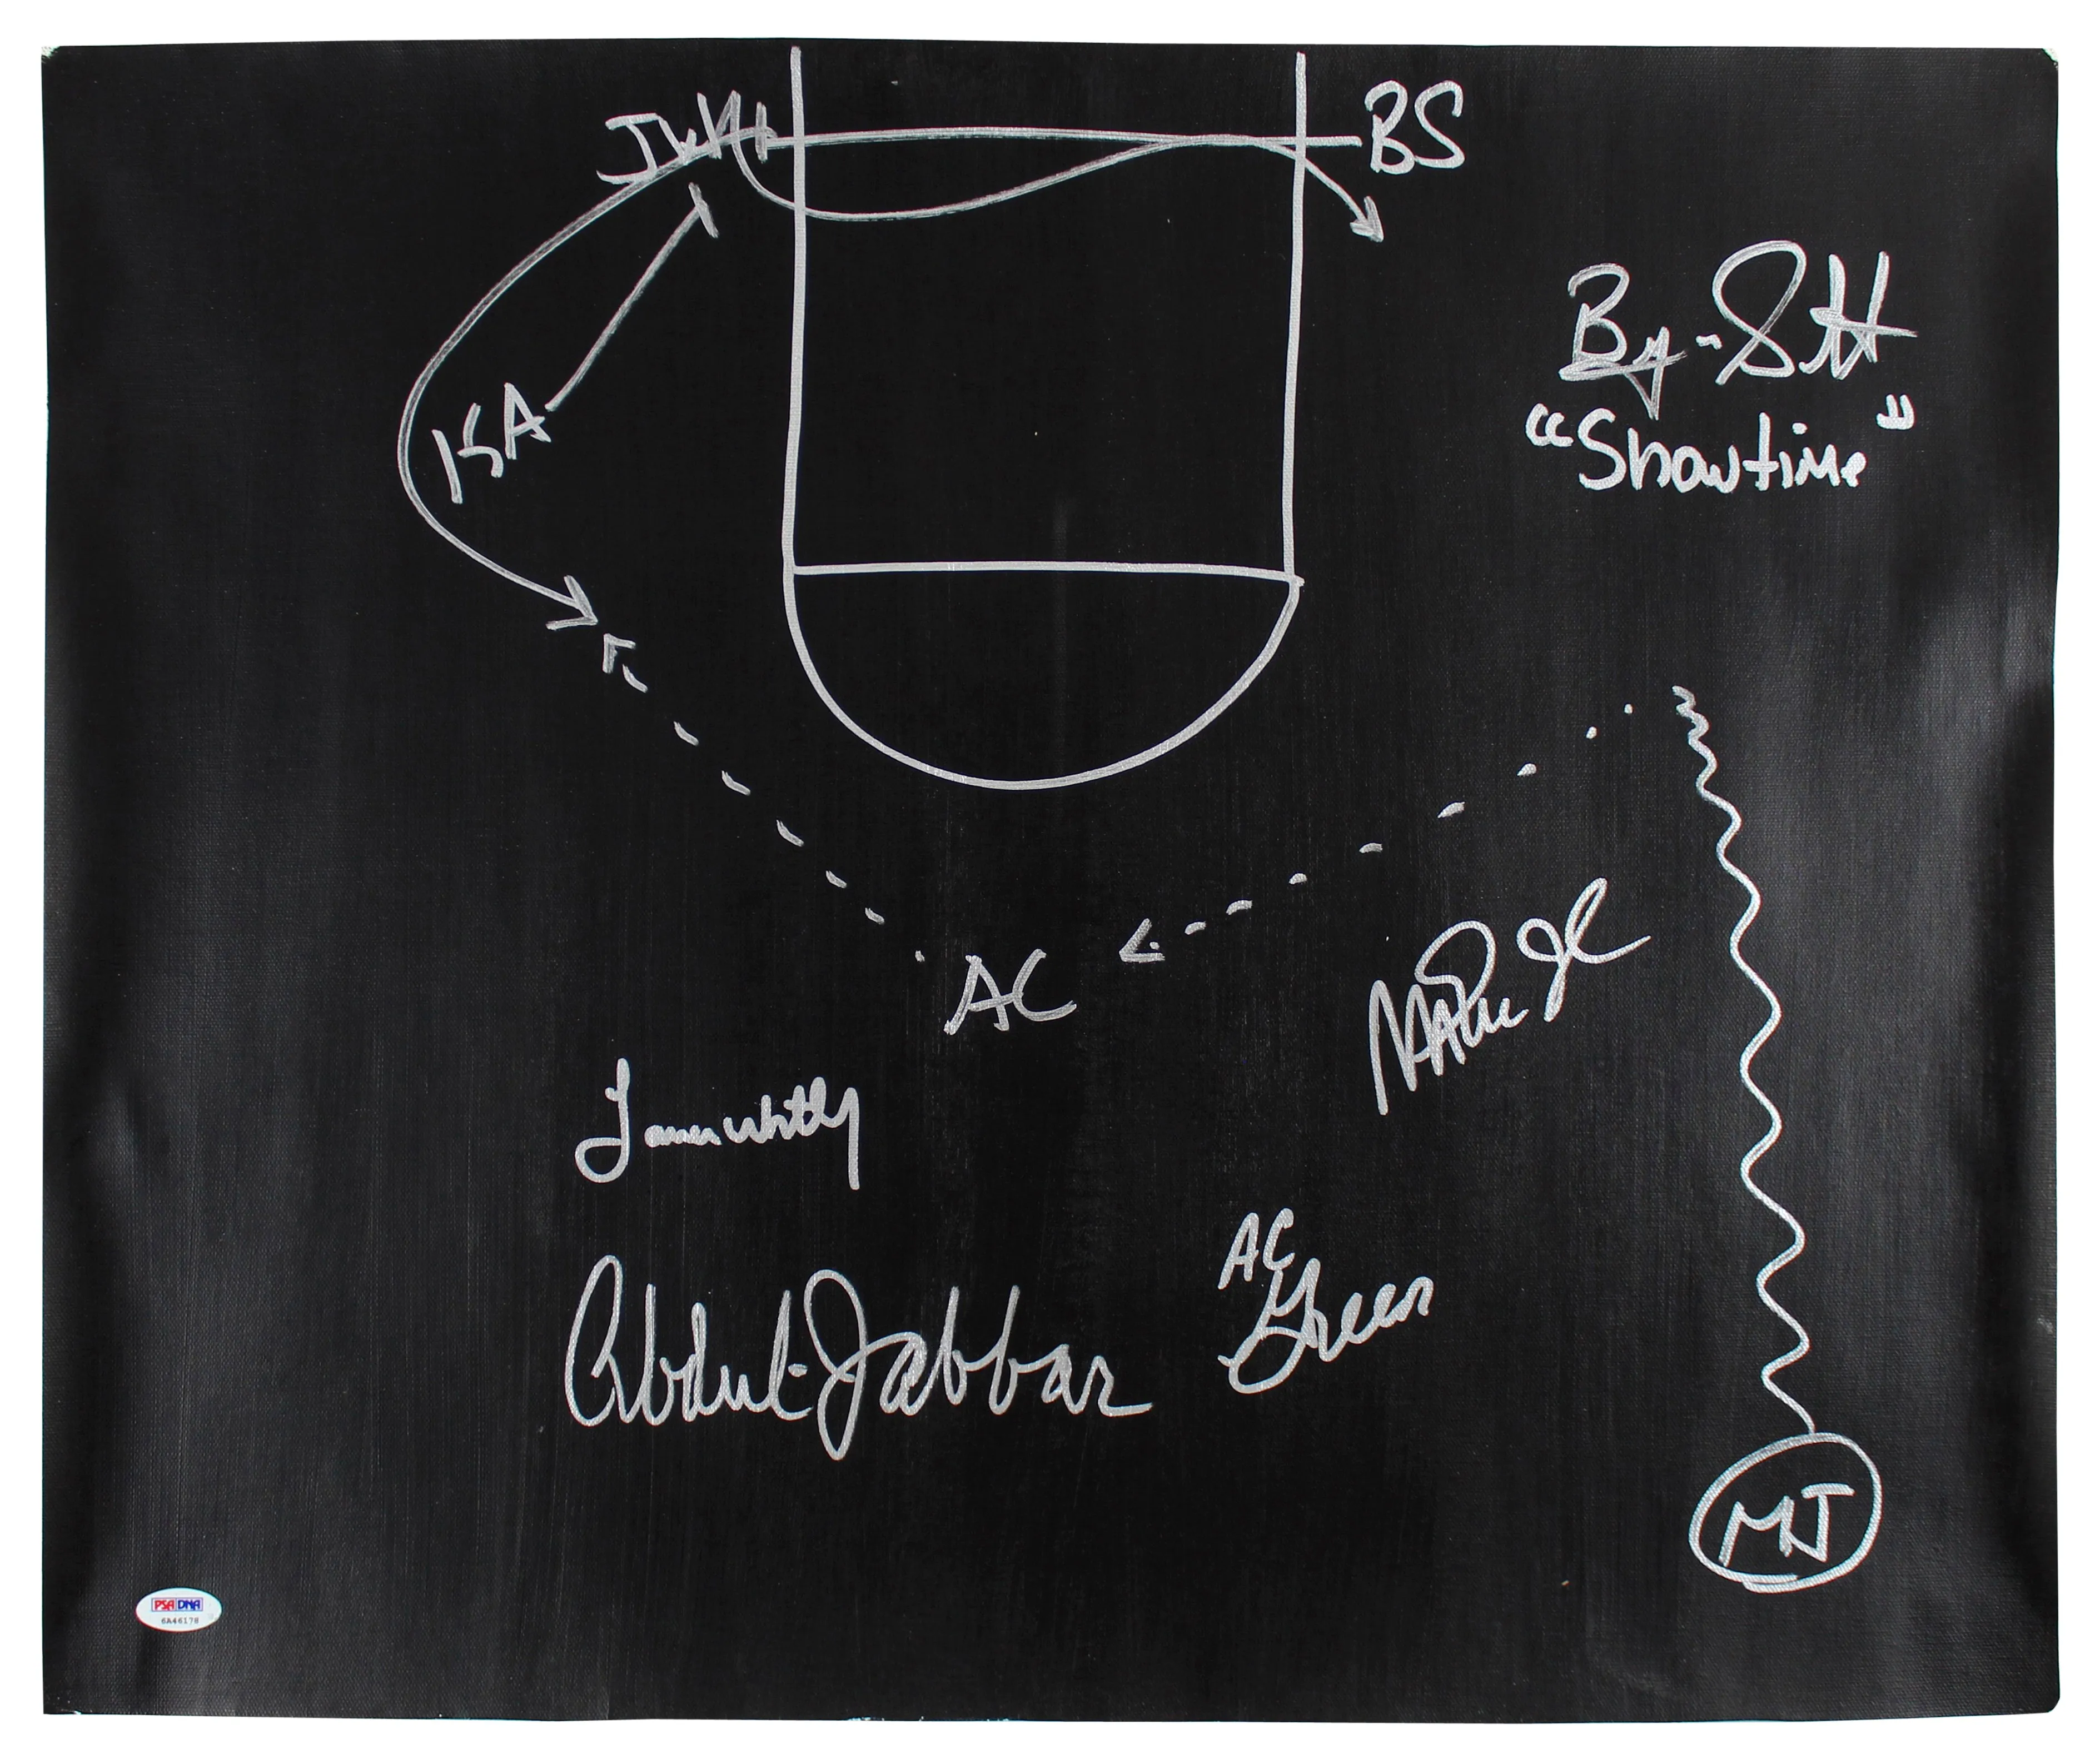 JW
BS
KA
Byron Scott
"Showtime"
AC
Magic J
James Worthy
AC
Green
Abdul-Jabbar
MJ
PSA DNA
6A46178